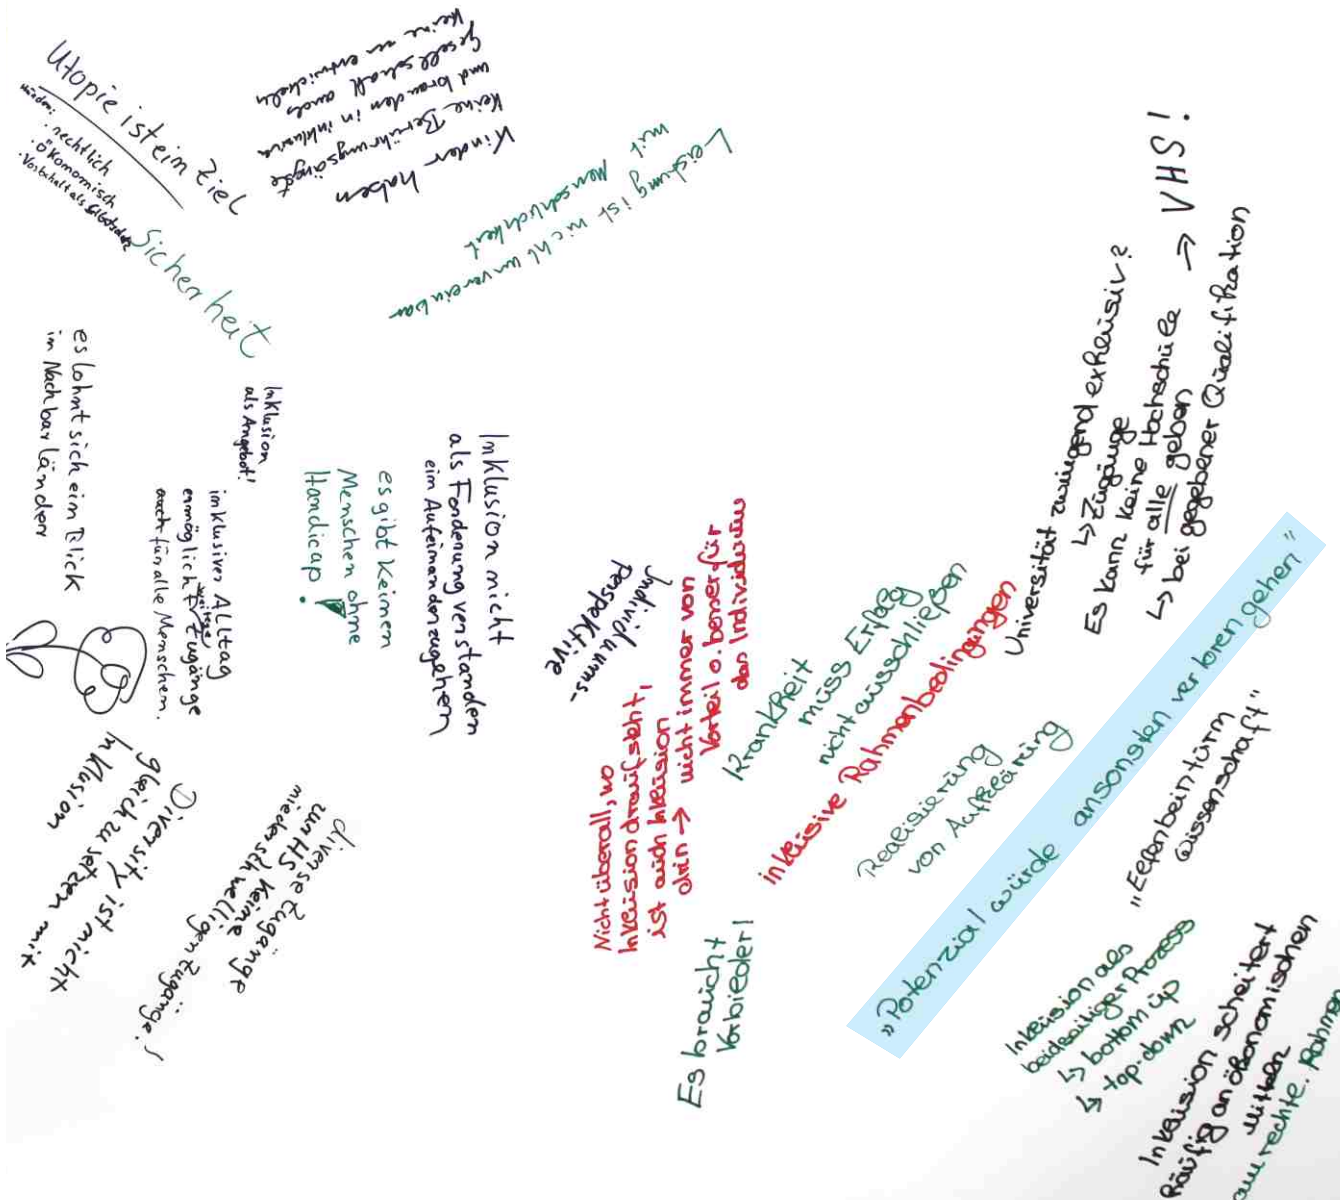 Utopie ist ein Ziel
Hürden:
· rechtlich
· ökonomisch
· Vorbehalt als Selbstschutz
Kinder haben
keine Berührungsängste
und brauchen in inklusiver
Gesellschaft auch
keine zu entwickeln
Leistung ist nicht unvereinbar
mit Menschlichkeit
Sicherheit
es lohnt sich ein Blick
in Nachbarländern
Inklusion
als Angebot!
inklusiver Alltag
ermöglicht weitere Zugänge
auch für alle Menschen.
es gibt keinen
Menschen ohne
Handicap!
Inklusion nicht
als Forderung verstanden
ein Aufeinanderzugehen
Individuums-
perspektive
Diversity ist nicht
gleichzusetzen mit
Inklusion
diverse Zugänge
zur HS keine
niederschwelligen Zugänge!
Nicht überall, wo
Inklusion draufsteht,
ist auch Inklusion
drin → nicht immer von
Vorteil o. besser für
das Individuum
Krankheit
muss Erfolg
nicht ausschließen
inklusive Rahmenbedingungen
Realisierung
von Aufklärung
Es braucht
Vorbilder!
Universität zwingend exklusiv?
↳ Zugänge
Es kann keine Hochschule → VHS!
für alle geben
↳ bei gegebener Qualifikation
„Potenzial würde ansonsten verloren gehen"
„Elfenbeinturm
Wissenschaft"
Inklusion als
beidseitiger Prozess
↳ bottom up
↳ top-down
Inklusion scheitert
häufig an ökonomischen
Mitteln
rechtl. Rahmen